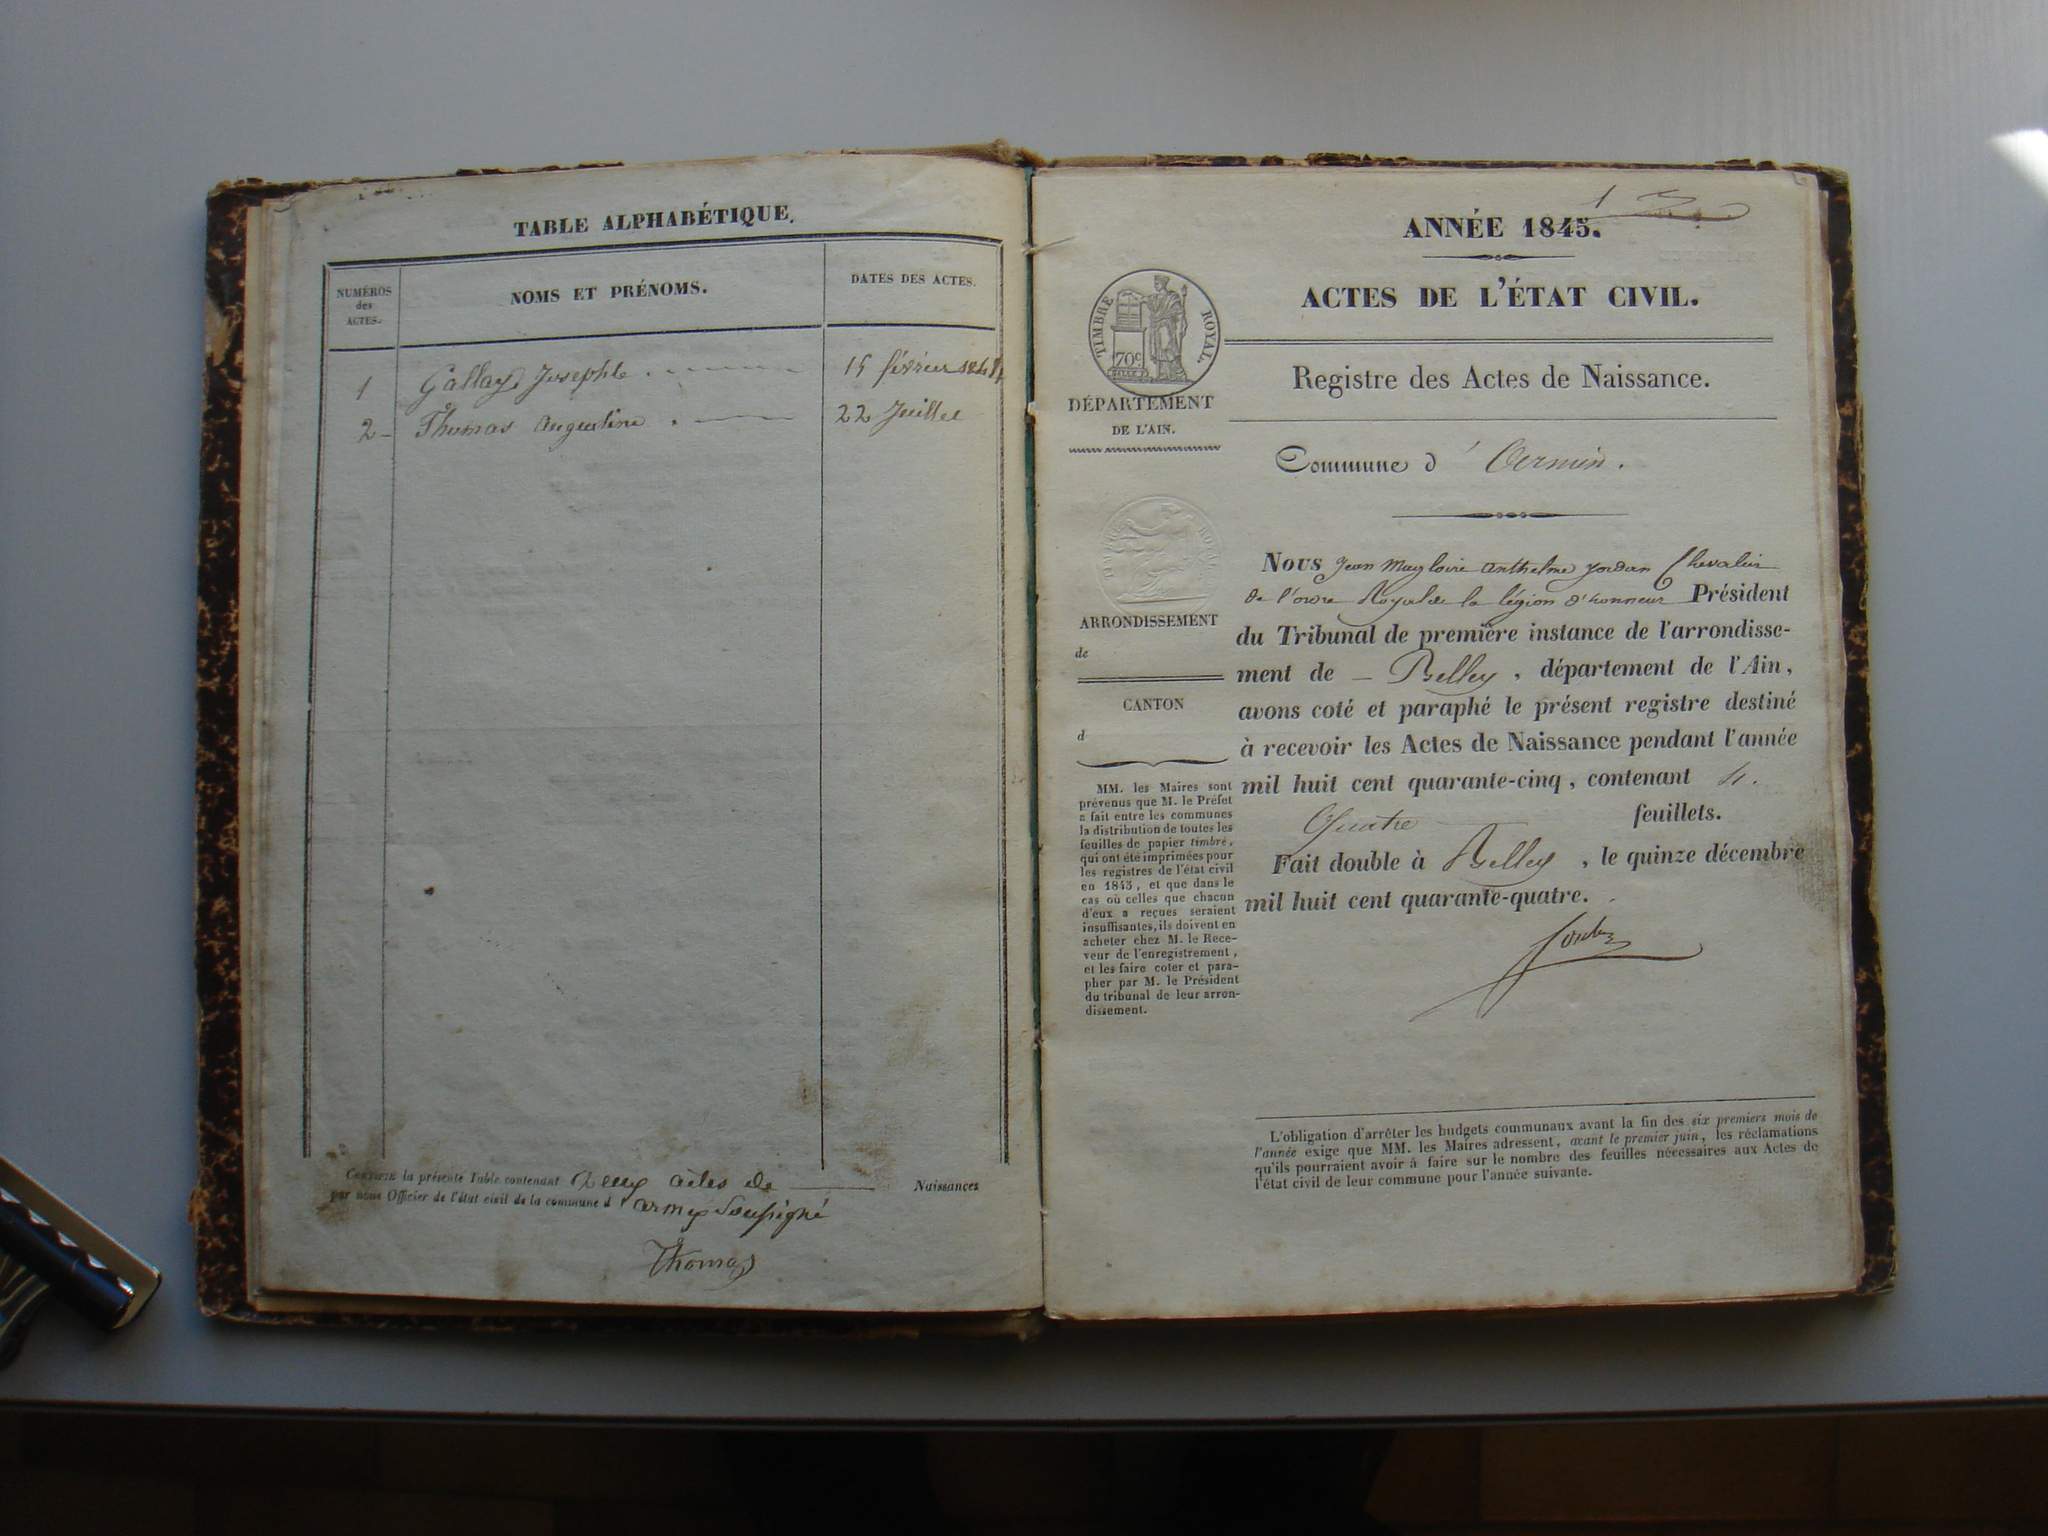 TABLE ALPHABÉTIQUE.
NUMÉROS
des
ACTES.
NOMS ET PRÉNOMS.
DATES DES ACTES.
1 Gallay Josephte 15 février 1844
2 Thomas augustine 22 Juillet
Certifié la présente Table contenant Deux actes de Naissances
par nous Officier de l'état civil de la commune d'armix Soussigné
Thomas
1
ANNÉE 1845.
ACTES DE L'ÉTAT CIVIL.
TIMBRE ROYAL.
70c
DÉPARTEMENT
DE L'AIN.
Registre des Actes de Naissance.
Commune d'
ARRONDISSEMENT
de
CANTON
d
MM. les Maires sont
prévenus que M. le Préfet
a fait entre les communes
la distribution de toutes les
feuilles de papier timbré,
qui ont été imprimées pour
les registres de l'état civil
en 1845, et que dans le
cas où celles que chacun
d'eux a reçues seraient
insuffisantes, ils doivent en
acheter chez M. le Rece-
veur de l'enregistrement,
et les faire coter et para-
pher par M. le Président
du tribunal de leur arron-
dissement.
Nous Jean Magloire Anthelme Jordan Chevalier
de l'ordre Royal de la légion d'honneur Président
du Tribunal de première instance de l'arrondisse-
ment de Belley, département de l'Ain,
avons coté et paraphé le présent registre destiné
à recevoir les Actes de Naissance pendant l'année
mil huit cent quarante-cinq, contenant 4.
Quatre feuillets.
Fait double à Belley, le quinze décembre
mil huit cent quarante-quatre.
L'obligation d'arrêter les budgets communaux avant la fin des six premiers mois de
l'année exige que MM. les Maires adressent, avant le premier juin, les réclamations
qu'ils pourraient avoir à faire sur le nombre des feuilles nécessaires aux Actes de
l'état civil de leur commune pour l'année suivante.